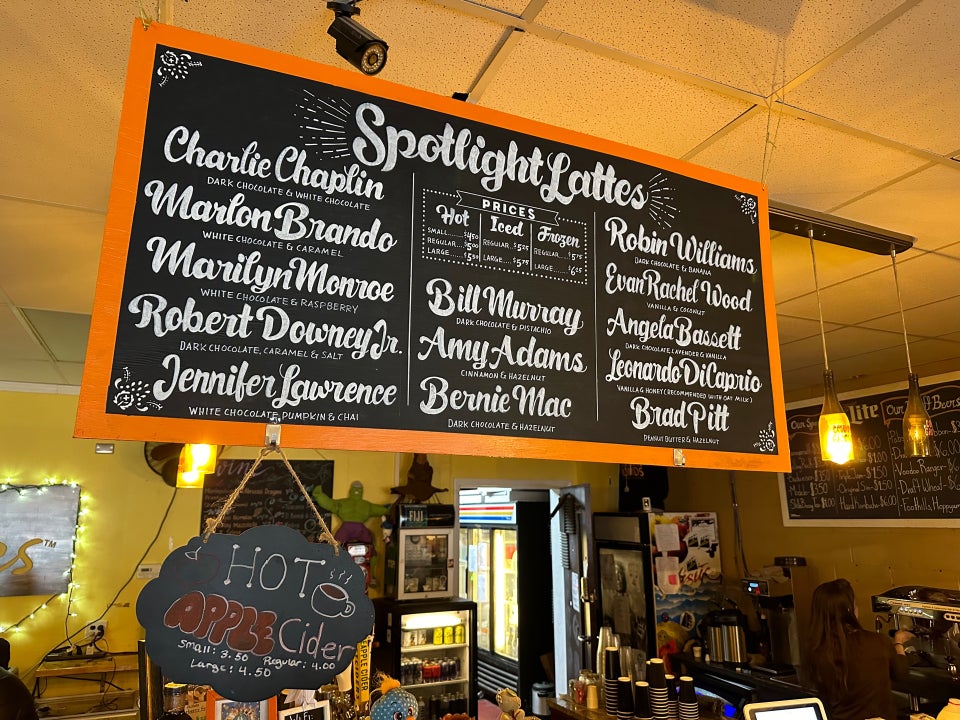 Spotlight Lattes
Charlie Chaplin
DARK CHOCOLATE & WHITE CHOCOLATE
Marlon Brando
WHITE CHOCOLATE & CARAMEL
Marilyn Monroe
WHITE CHOCOLATE & RASPBERRY
Robert Downey Jr.
DARK CHOCOLATE, CARAMEL & SALT
Jennifer Lawrence
WHITE CHOCOLATE, PUMPKIN & CHAI
PRICES
Hot
SMALL......$4.50
REGULAR....$5.00
LARGE.....$5.50
Iced
REGULAR..$5.25
LARGE....$5.75
Frozen
REGULAR...$5.75
LARGE....$6.25
Bill Murray
DARK CHOCOLATE & PISTACHIO
Amy Adams
CINNAMON & HAZELNUT
Bernie Mac
DARK CHOCOLATE & HAZELNUT
Robin Williams
DARK CHOCOLATE & BANANA
Evan Rachel Wood
VANILLA & COCONUT
Angela Bassett
DARK CHOCOLATE, LAVENDER & VANILLA
Leonardo DiCaprio
VANILLA & HONEY (RECOMMENDED WITH OAT MILK)
Brad Pitt
PEANUT BUTTER & HAZELNUT
HOT
APPLE Cider
Small: 3.50 Regular: 4.00
Large: 4.50
FIJI
Lite
Voodoo Ranger
APPLE CIDER